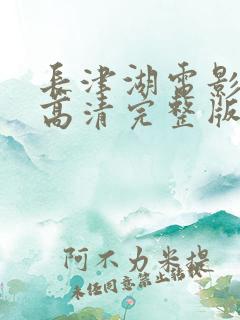 長津湖電影
高清完整版
阿不力米提
未經同意禁止轉載